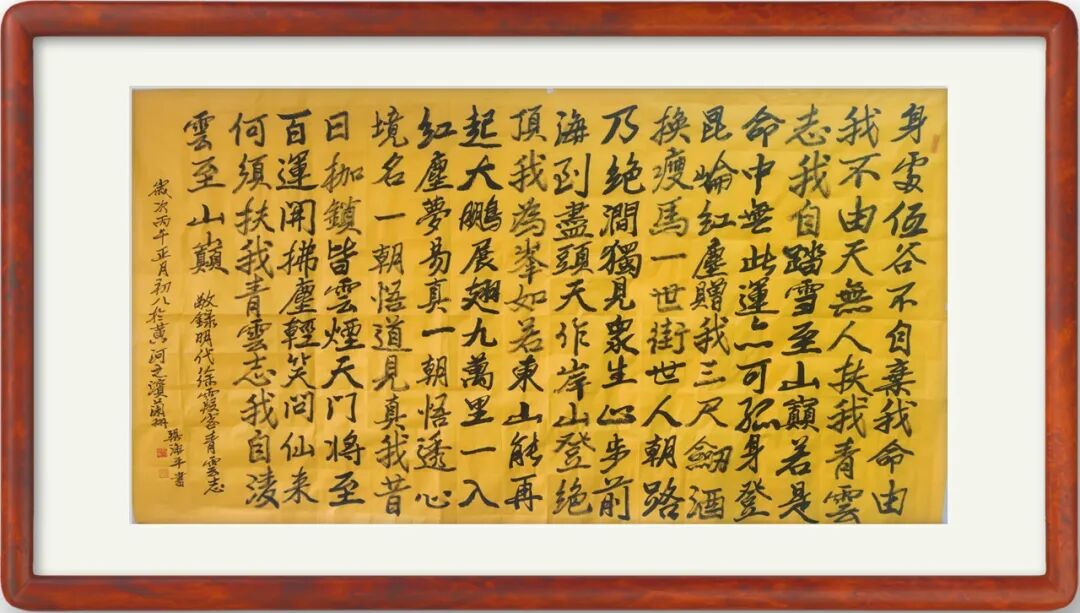 身處伍谷不自棄我命由
我不由天無人扶我青雲
志我自踏雪至山巔若是
命中無此運亦可孤身登
昆崙紅塵贈我三尺劍酒
換瘦馬一世街世人朝路
乃絕澗獨見衆生心步前
海到盡頭天作岸山登絕
頂我為峯如若東山能再
起大鵬展翅九萬里一入
紅塵夢易真一朝悟透心
境名一朝悟道見真我昔
日枷鎖皆雲煙天門將至
百運開拂塵輕笑問仙来
何須扶我青雲志我自淩
雲至山巔
敬録明代徐霞客青雲志
歲次丙午正月初八於黃河之濱蘭州
張海平書